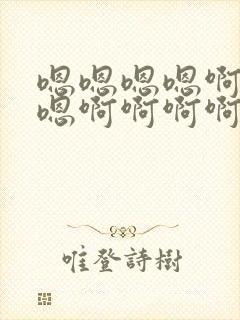 嗯嗯嗯嗯啊
嗯啊啊啊啊
唯登詩樹